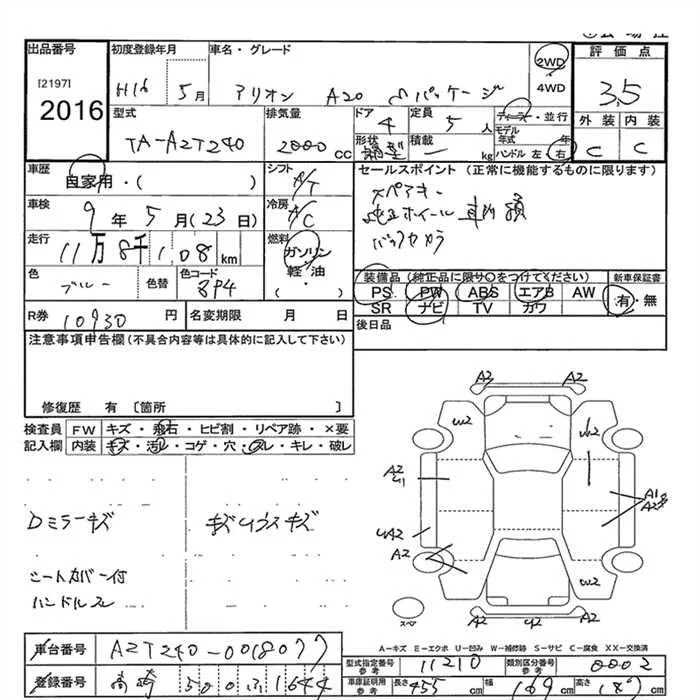 出品番号 初度登録年月 車名・グレード 2WD 評価点
[2197] 4WD
2016 H16 5月 アリオン A20 Sパッケージ 3.5
型式 排気量 ドア 定員 ディーラー・並行 外装 内装
TA-AZT240 2000cc 4 5人 モデル年式 年 C C
形状 積載 kg ハンドル 左・右
車歴 シフト セールスポイント(正常に機能するものに限ります)
自家用・( ) A/T スペアキー
車検 冷房 純正ホイール
9年5月(23日) A/C バックカメラ
走行 燃料
11万8千108km ガソリン
軽・油
色 色替 色コード ・
ブルー 8P4 ( )
装備品(純正品に限り○をつけてください) 新車保証書
PS PW ABS エアB AW 有・無
SR ナビ TV カワ
R券 10930円 名変期限 月 日 後日品
注意事項申告欄(不具合内容等は具体的に記入して下さい)
修復歴 有 〔箇所 〕
検査員 FW キズ・飛石・ヒビ割・リペア跡・×要
記入欄 内装 キズ・汚レ・コゲ・穴・スレ・キレ・破レ
Dミラーキズ
シートカバー付
ハンドルスレ
A2 A2
W2 W2
A2
A1
A2
UA2
A2
W2
A2 U2 A2
スペア
A-キズ E-エクボ U-凹み W-補修跡 S-サビ C-腐食 XX-交換済
車台番号 AZT240-0018077 型式指定番号 参考 11210 類別区分番号 参考 0002
登録番号 高崎 500 ふ 1644 車庫証明用 参考 長さ 455cm 幅 169cm 高さ 147cm